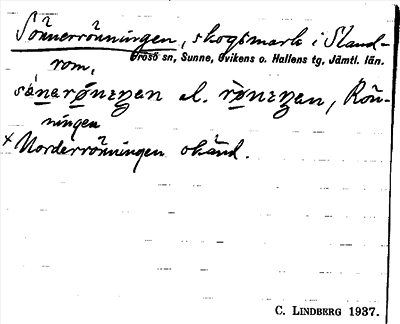 Sönnerrönningen, skogsmark i Sland-
rom,
Orosö sn, Sunne, Ovikens o. Hallens tg, Jämtl. län.
el. Rön-
ningen
× Norderrönningen okänd.
C. LINDBERG 1937.